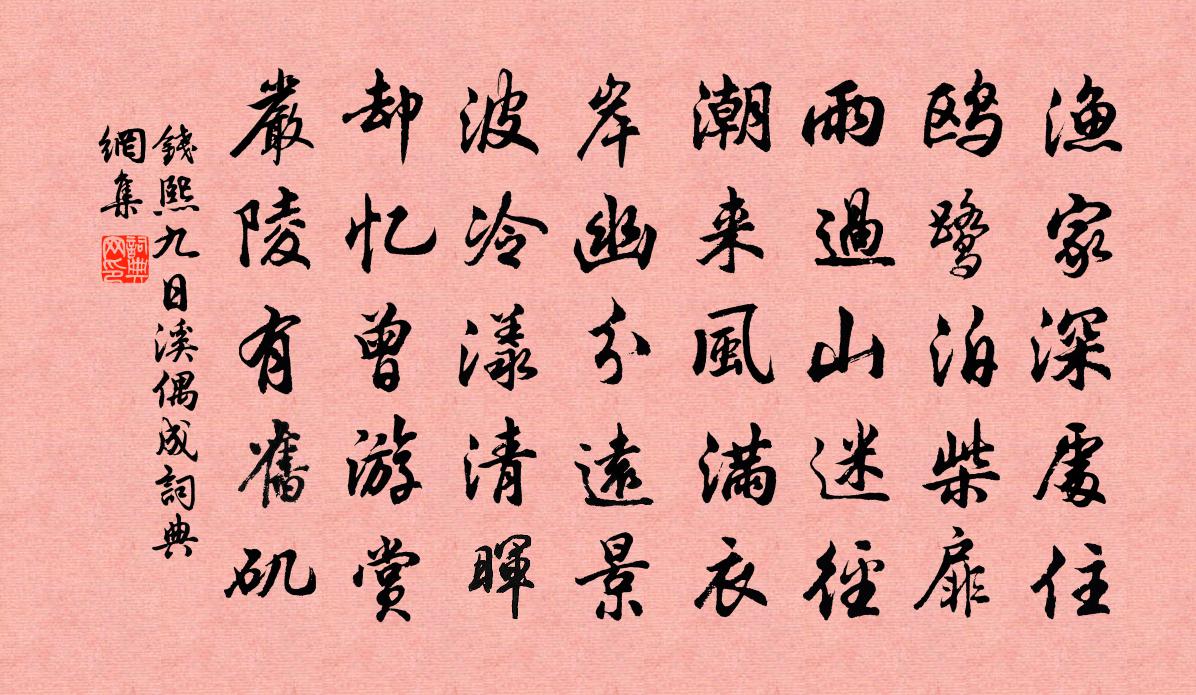 渔家深處住
鸥鹭泊柴扉
雨過山迷徑
潮来風滿衣
岸幽分遠景
波冷漾清暉
却忆曾游赏
嚴陵有舊矶
錢熙九日溪偶成詞典
網集
詞典
网印